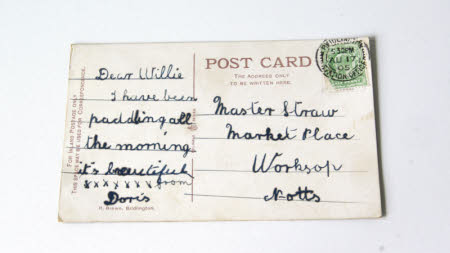 POST CARD
THE ADDRESS ONLY
TO BE WRITTEN HERE.
FOR INLAND POSTAGE ONLY
THIS SPACE MAY BE USED FOR CORRESPONDENCE.
Dear Willie
I have been
paddling all
the morning
it's beautiful
x x x x x x x from
Doris
Master Straw
Market Place
Worksop
Notts
AU 17
05